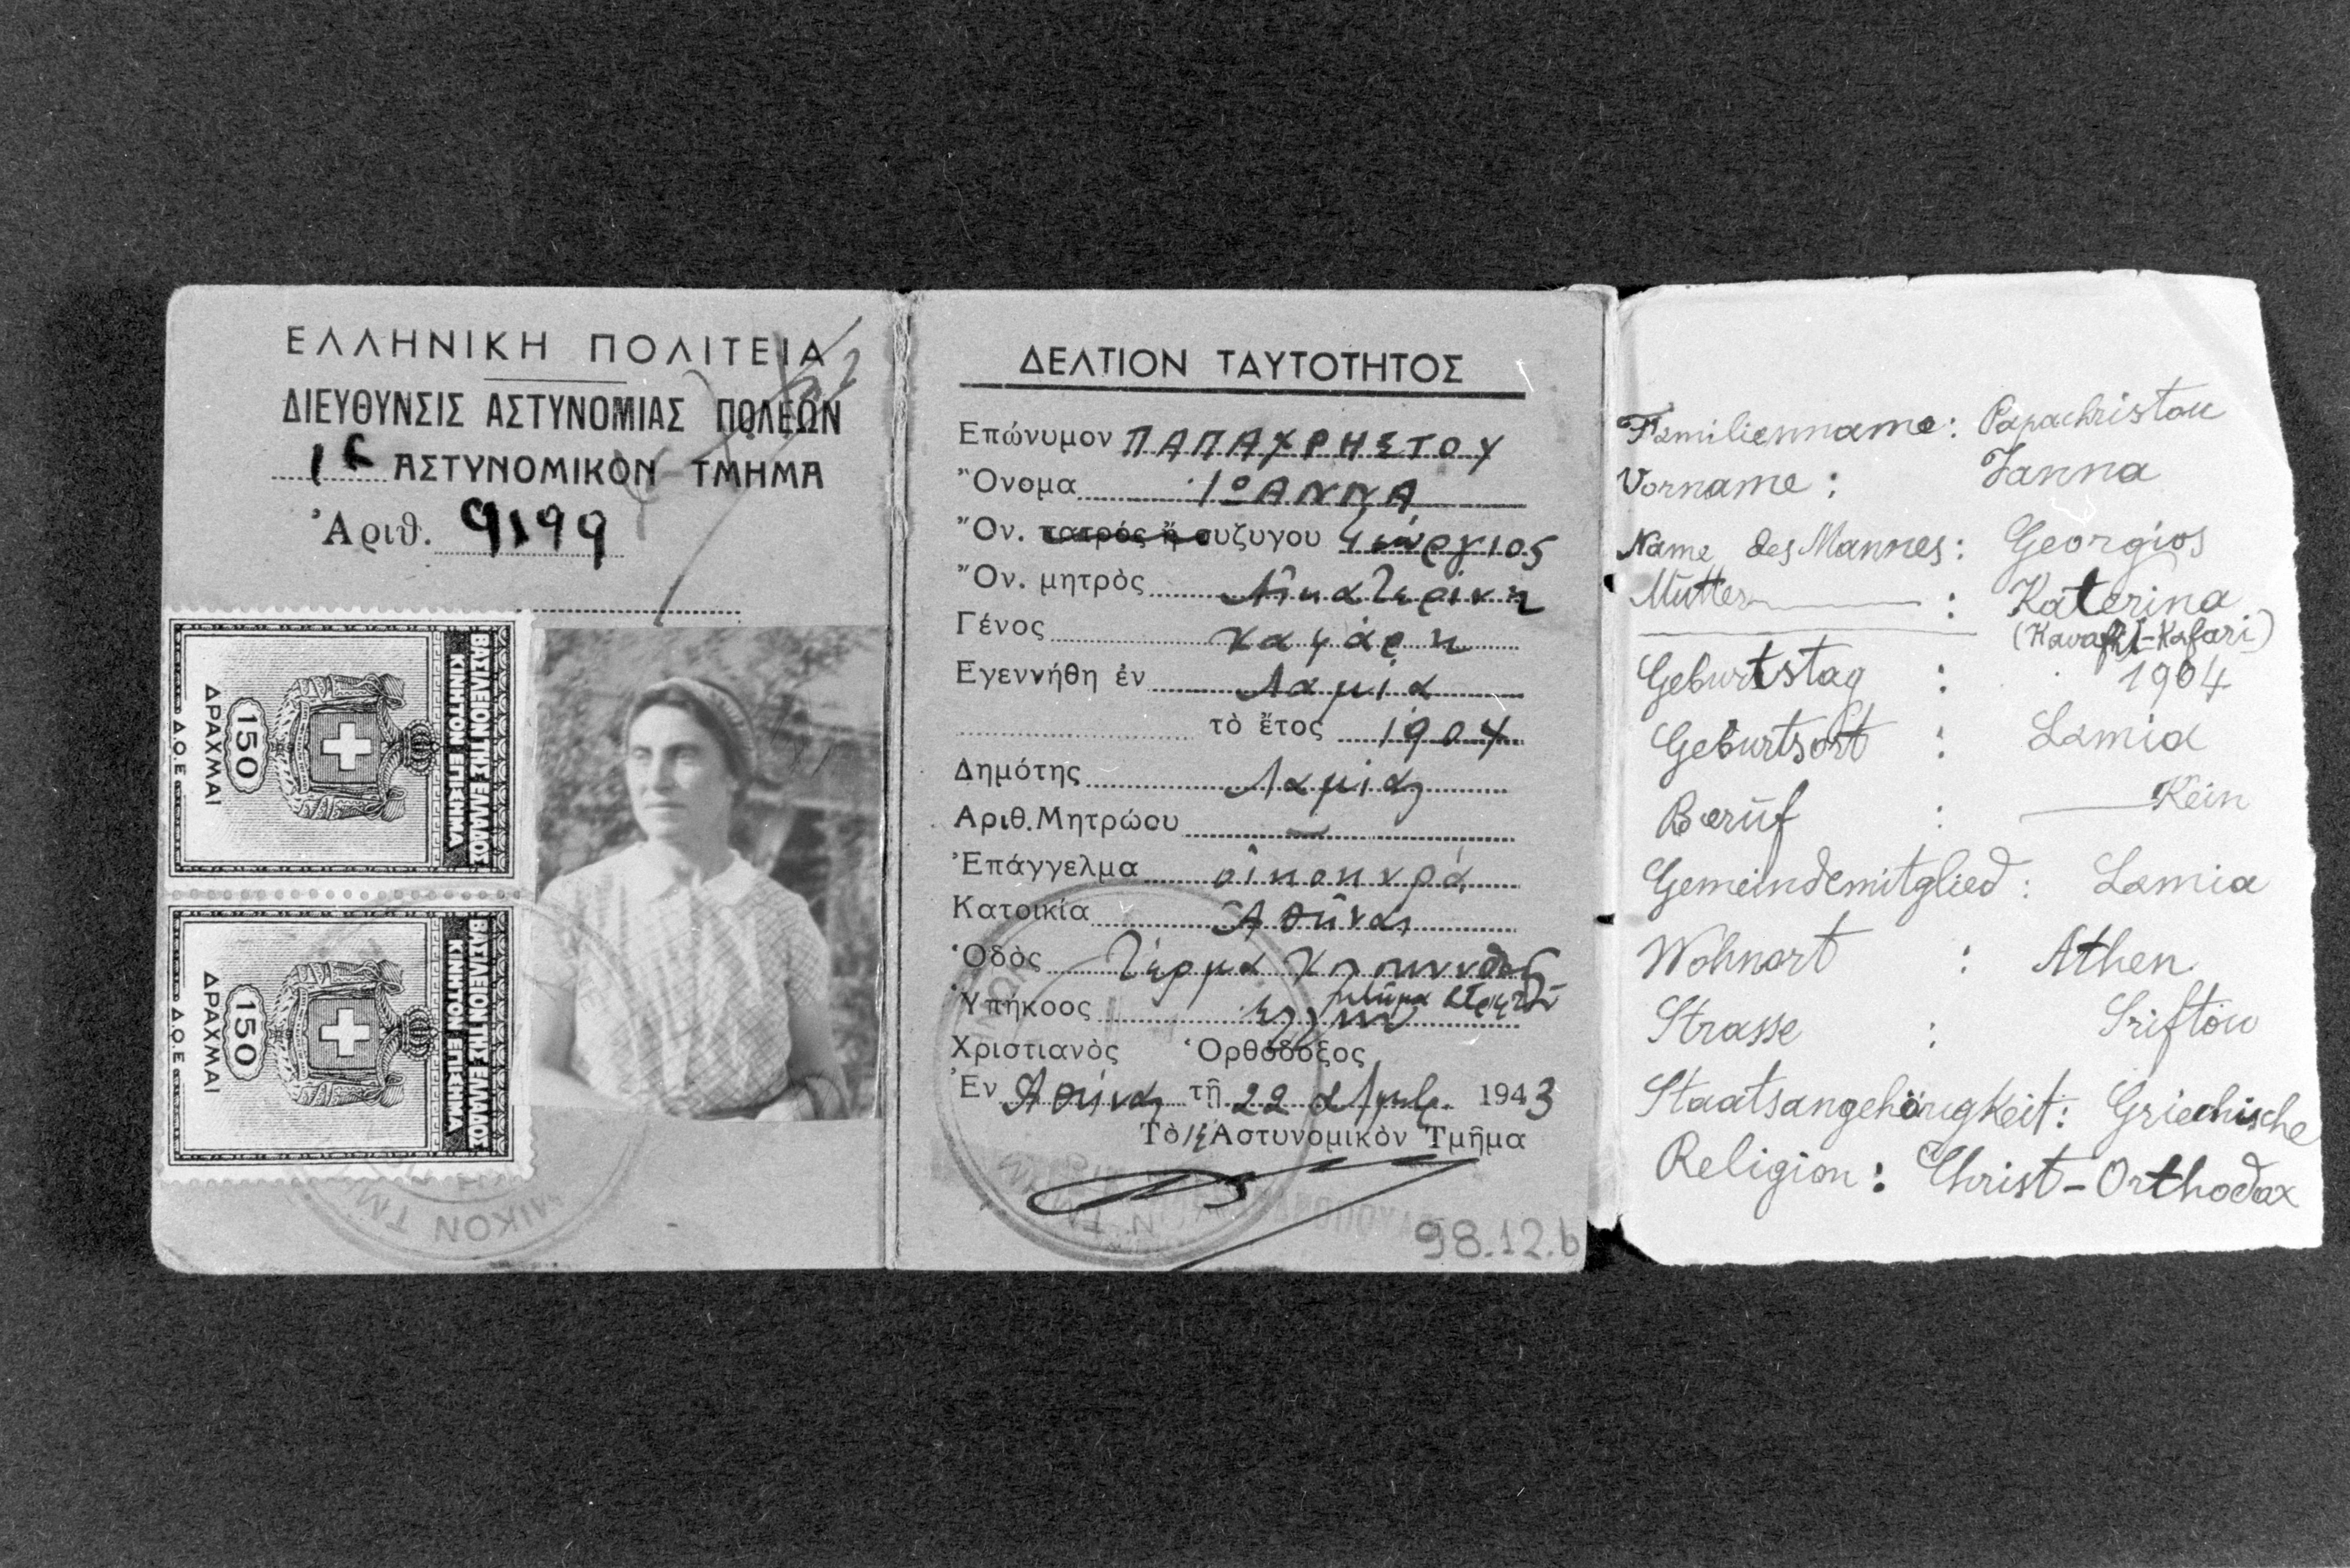 ΕΛΛΗΝΙΚΗ ΠΟΛΙΤΕΙΑ
ΔΙΕΥΘΥΝΣΙΣ ΑΣΤΥΝΟΜΙΑΣ ΠΟΛΕΩΝ
ΑΣΤΥΝΟΜΙΚΟΝ ΤΜΗΜΑ
Ἀριθ. 9199
ΒΑΣΙΛΕΙΟΝ ΤΗΣ ΕΛΛΑΔΟΣ
ΚΙΝΗΤΟΝ ΕΠΙΣΗΜΑ
150
ΔΡΑΧΜΑΙ
Δ.Ο.Ε.
ΒΑΣΙΛΕΙΟΝ ΤΗΣ ΕΛΛΑΔΟΣ
ΚΙΝΗΤΟΝ ΕΠΙΣΗΜΑ
150
ΔΡΑΧΜΑΙ
Δ.Ο.Ε.
ΔΕΛΤΙΟΝ ΤΑΥΤΟΤΗΤΟΣ
Επώνυμον ΠΑΠΑΧΡΗΣΤΟΥ
Ὄνομα ΙΩΑΝΝΑ
Ὄν. πατρός ἤ συζυγου Γεώργιος
Ὄν. μητρὸς Αἰκατερίνη
Γένος Καφάρη
Εγεννήθη ἐν Λαμία
τὸ ἔτος 1904
Δημότης Λαμίας
Αριθ. Μητρώου —
Ἐπάγγελμα οἰκοκυρά
Κατοικία Ἀθήνας
Ὁδὸς Τέρμα
Ὑπήκοος Ἑλλην
Χριστιανὸς Ὀρθόδοξος
Ἐν Ἀθήνας τῇ 22 1943
Τὸ Ἀστυνομικὸν Τμῆμα
98.12.b
Familienname: Papachristou
Vorname: Janna
Name des Mannes: Georgios
Mutter : Katerina
1904
Geburtstag :
Geburtsort : Lamia
Beruf : Kein
Gemeindemitglied: Lamia
Wohnort : Athen
Strasse : Sriftou
Staatsangehörigkeit: Griechische
Religion: Christ-Orthodox